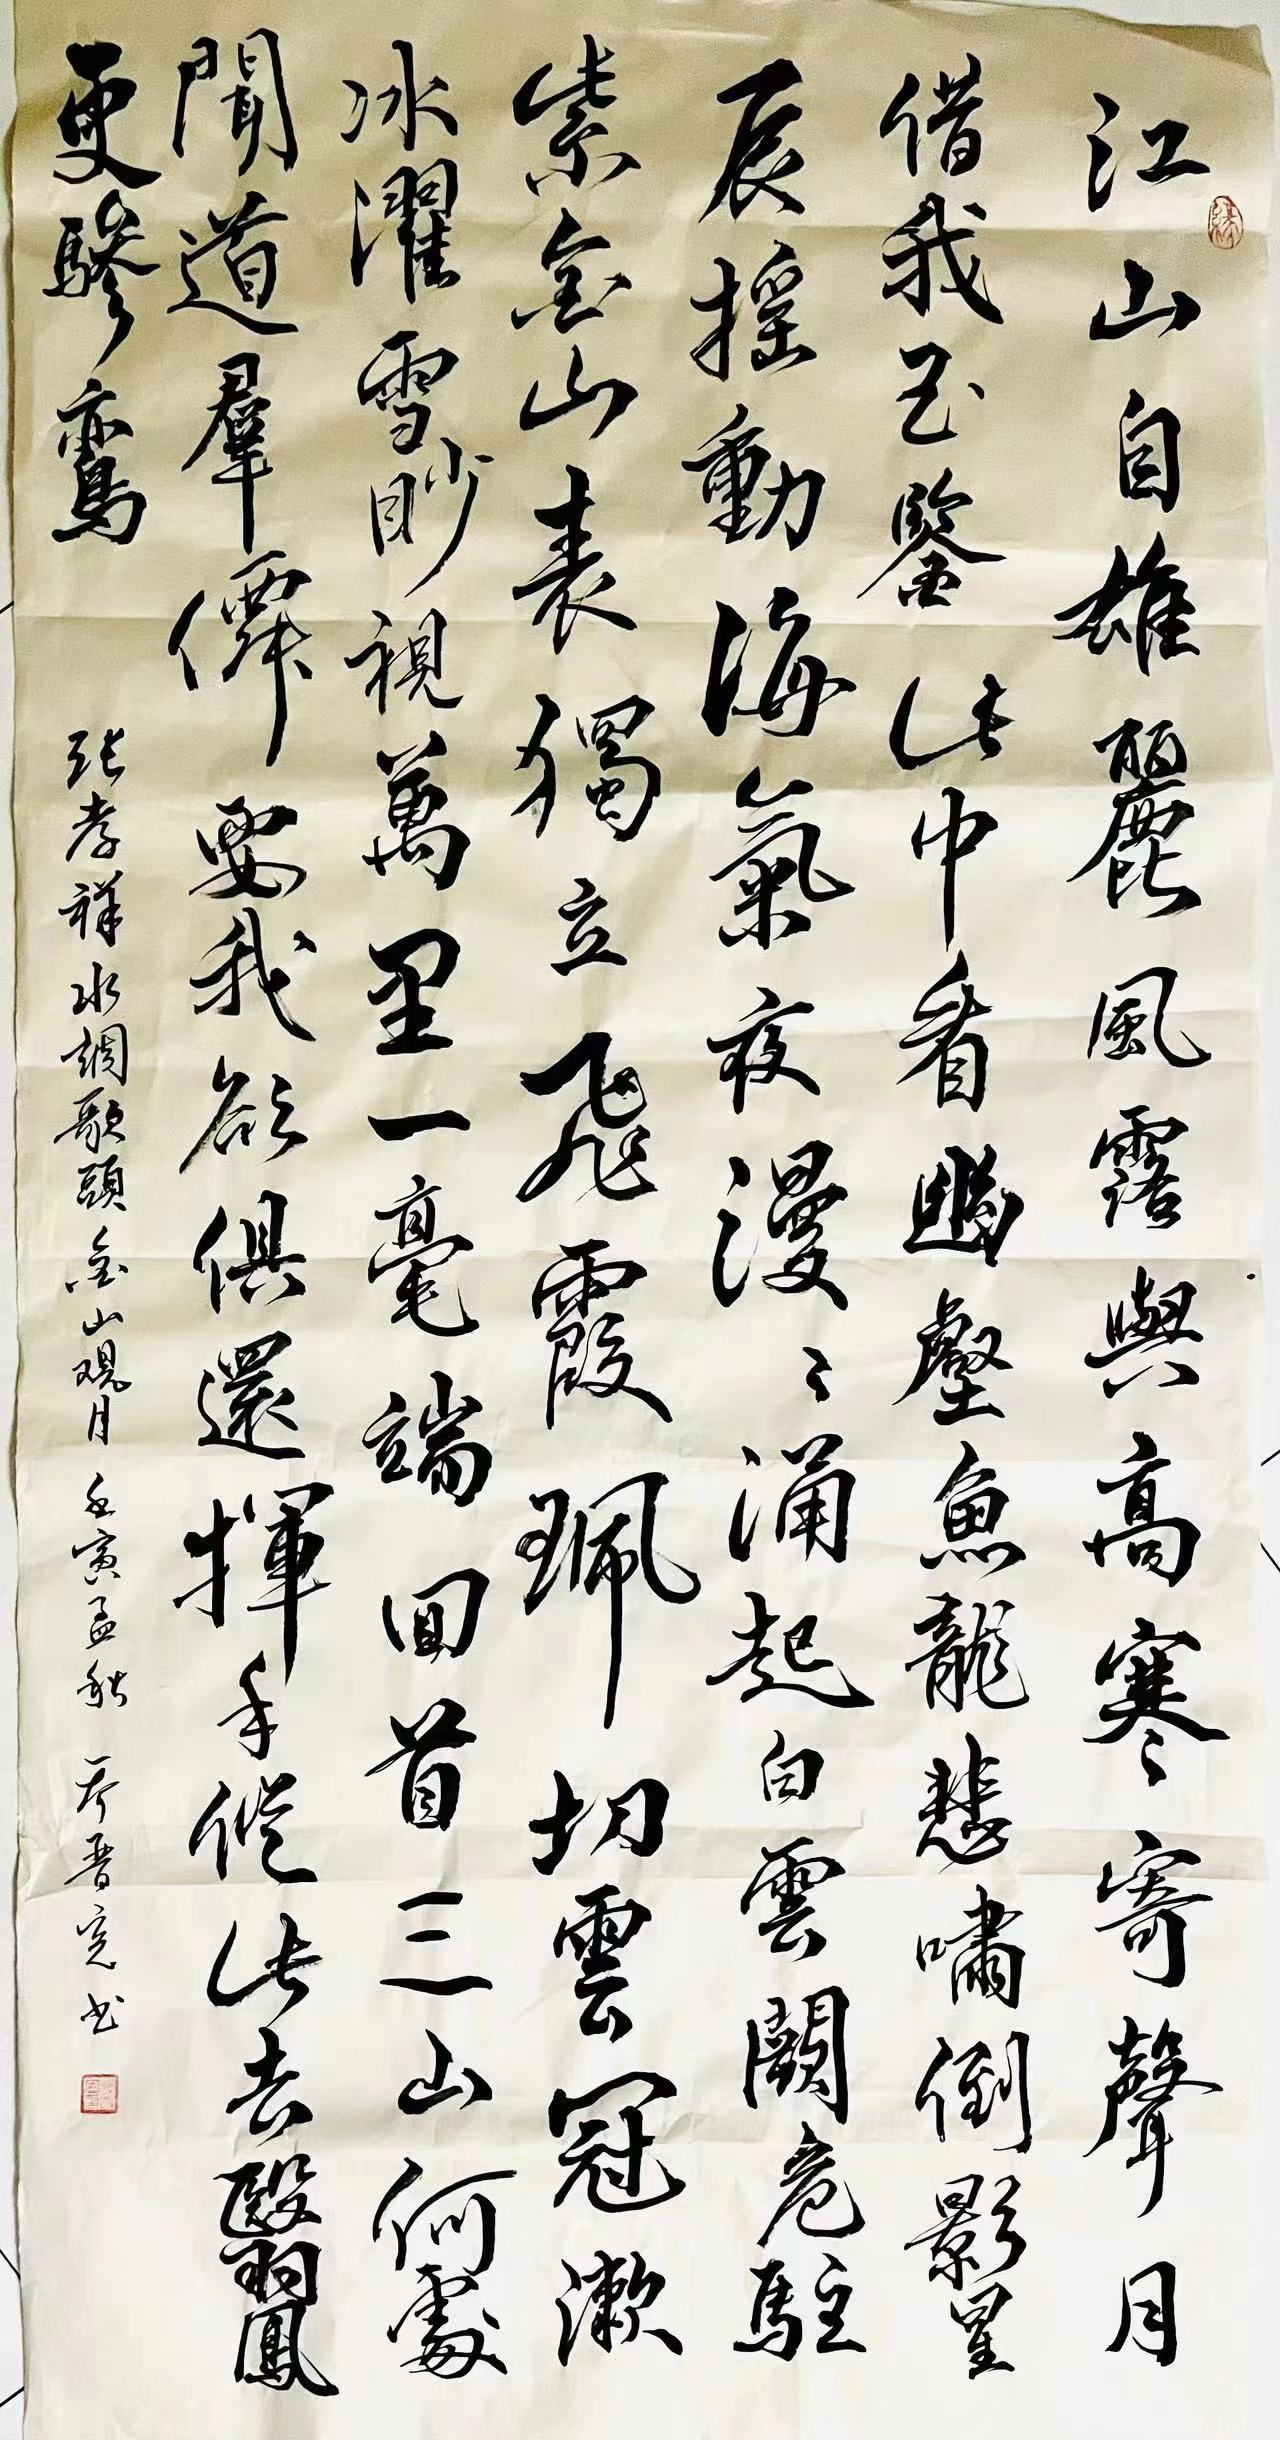 江山自雄麗風露與高寒寄聲月
借我玉鑒此中看幽壑魚龍悲嘯倒影星
辰搖動海氣夜漫〻涌起白雲闕危駐
紫金山表獨立飛霞珮切雲冠漱
冰濯雪眇視萬里一毫端回首三山何處
聞道羣僊要我欲俱還揮手從此去翳鳳
更驂鸞
張孝祥水調歌頭金山观月 壬寅孟秋 晋寬书